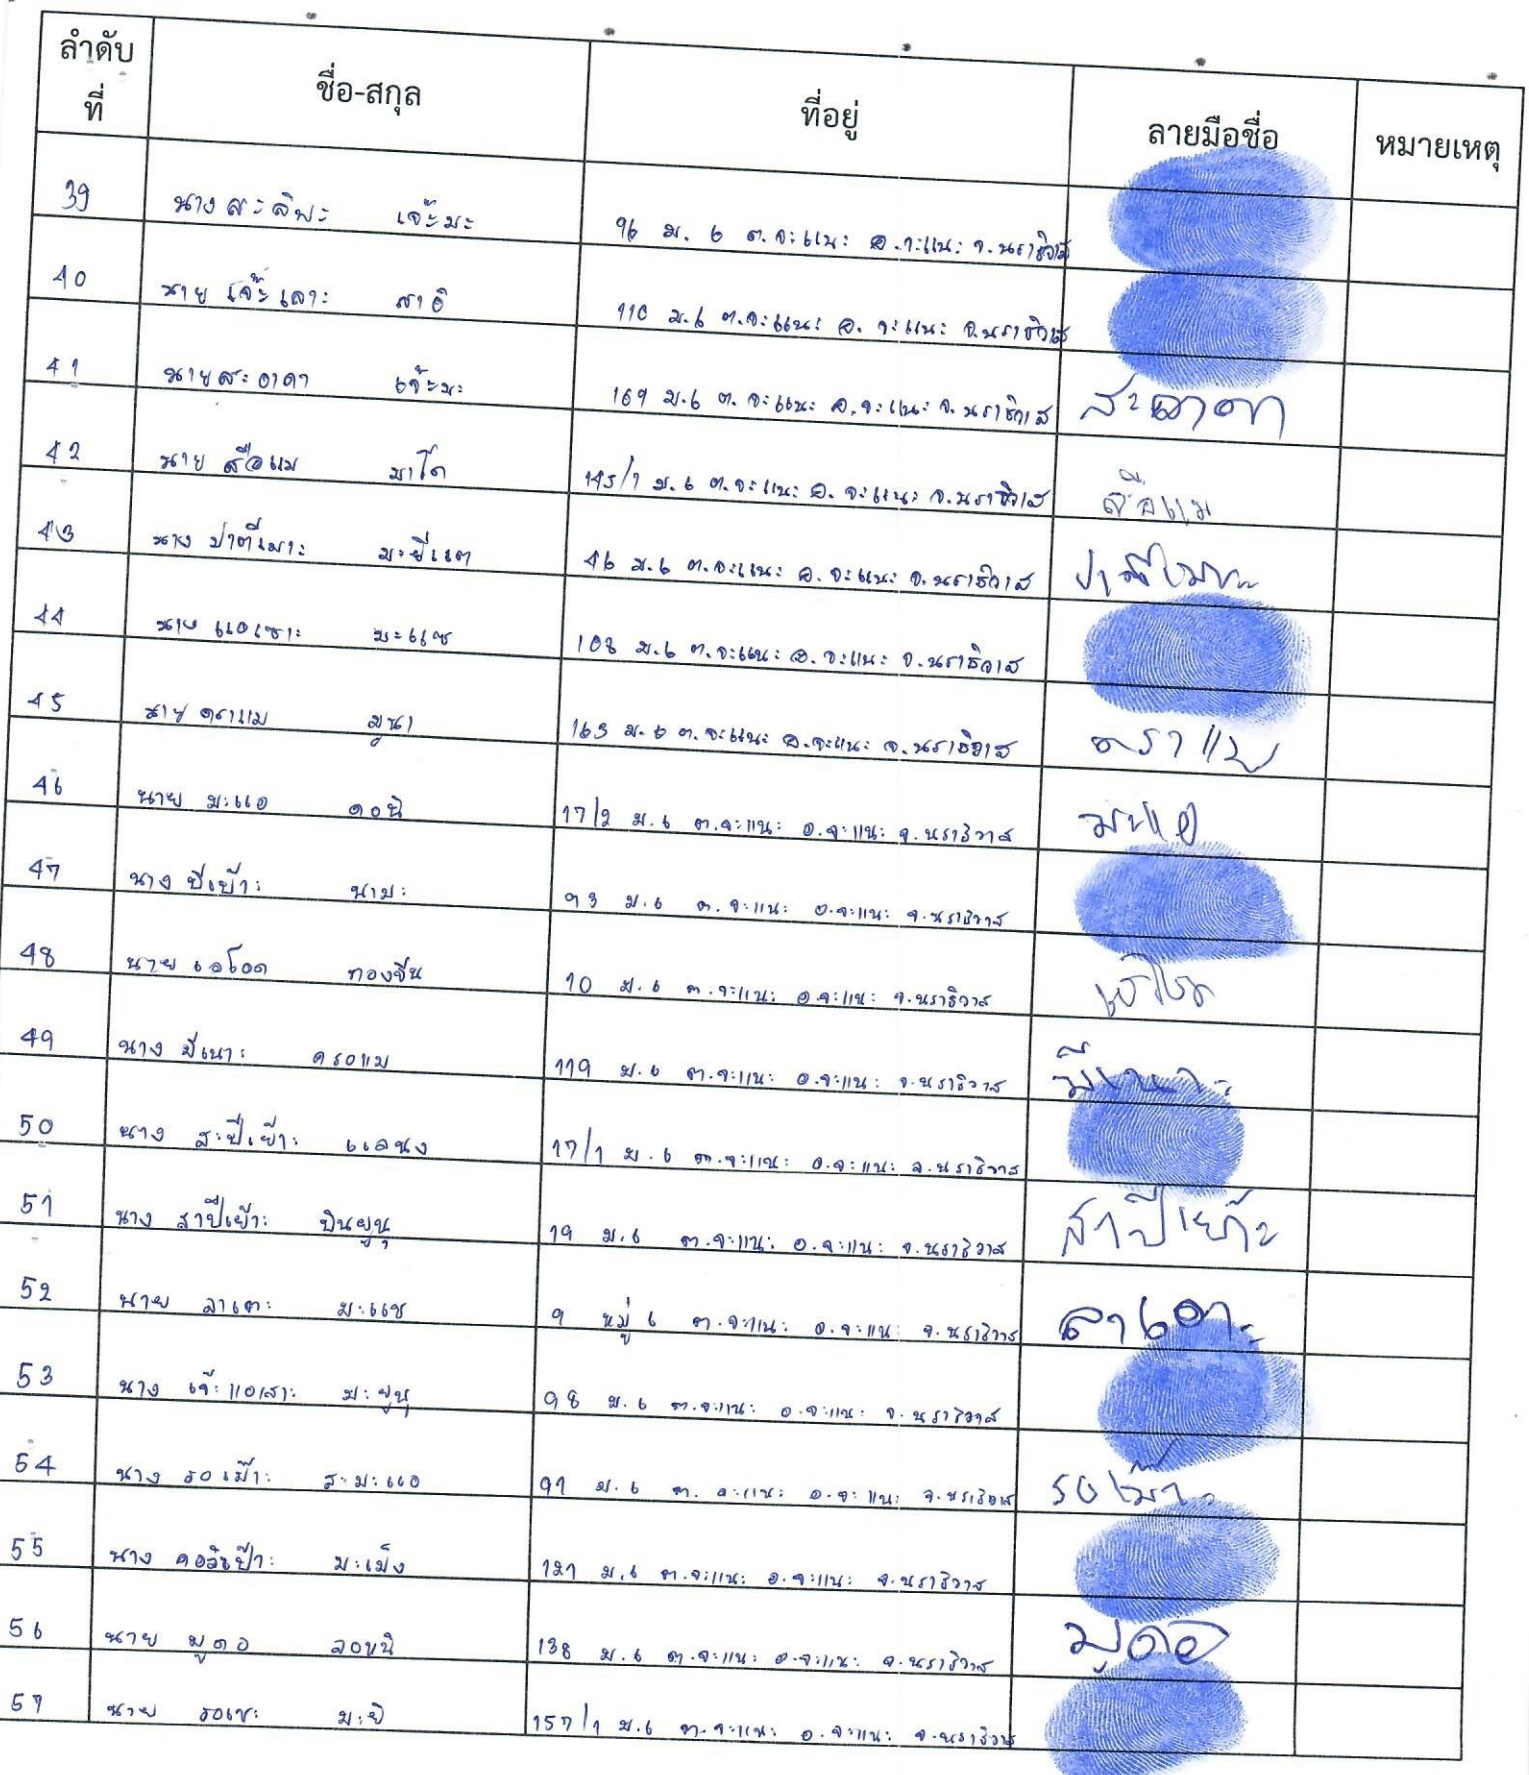 ลำดับที่ ชื่อ-สกุล ที่อยู่ ลายมือชื่อ หมายเหตุ
39 นาง สะลิพะ เจ๊ะมะ 96 ม. 6 ต.จะแนะ อ.จะแนะ จ.นราธิวาส
40 นาย เจ๊ะเลาะ สาอิ 110 ม.6 ต.จะแนะ อ. จะแนะ จ.นราธิวาส
41 นาย สะอาดา เจ๊ะมะ 169 ม.6 ต.จะแนะ อ.จะแนะ จ.นราธิวาส
42 นาย สือแม มาโด 145/1 ม.6 ต.จะแนะ อ. จะแนะ จ.นราธิวาส สือแม
43 นาง ปาตีเมาะ มะยีแต 46 ม.6 ต.จะแนะ อ. จะแนะ จ.นราธิวาส ปาตีเมาะ
44 นาง แอเซาะ มะแซ 108 ม.6 ต.จะแนะ อ. จะแนะ จ.นราธิวาส
45 นาย ดราแม มูนา 163 ม.6 ต.จะแนะ อ.จะแนะ จ.นราธิวาส ดราแม
46 นาย มะแอ ดอนิ 17/2 ม.6 ต.จะแนะ อ.จะแนะ จ.นราธิวาส มะแอ
47 นาง บีเย๊าะ นามะ 93 ม.6 ต.จะแนะ อ.จะแนะ จ.นราธิวาส
48 นาย ทองจีน 10 ม.6 ต.จะแนะ อ.จะแนะ จ.นราธิวาส
49 นาง มีเนาะ ดรอแม 119 ม.6 ต.จะแนะ อ.จะแนะ จ.นราธิวาส มีเนาะ
50 นาง สะปีเย๊าะ แลนง 17/1 ม.6 ต.จะแนะ อ.จะแนะ จ.นราธิวาส
51 นาง สาปีเย๊าะ บินยูนุ 19 ม.6 ต.จะแนะ อ.จะแนะ จ.นราธิวาส สาปีเย๊าะ
52 นาย ลาเตะ มะแซ 9 หมู่ 6 ต.จะแนะ อ.จะแนะ จ.นราธิวาส
53 นาง เจ๊ะแอเสาะ มะยูนุ 98 ม.6 ต.จะแนะ อ.จะแนะ จ.นราธิวาส
54 นาง รอเม๊าะ สะมะแอ 91 ม.6 ต.จะแนะ อ.จะแนะ จ.นราธิวาส รอเม๊าะ
55 นาง มะเม็ง 121 ม.6 ต.จะแนะ อ.จะแนะ จ.นราธิวาส
56 นาย มูดอ ลอหนิ 138 ม.6 ต.จะแนะ อ.จะแนะ จ.นราธิวาส มูดอ
57 นาย รอเซะ มะยิ 157/1 ม.6 ต.จะแนะ อ.จะแนะ จ.นราธิวาส